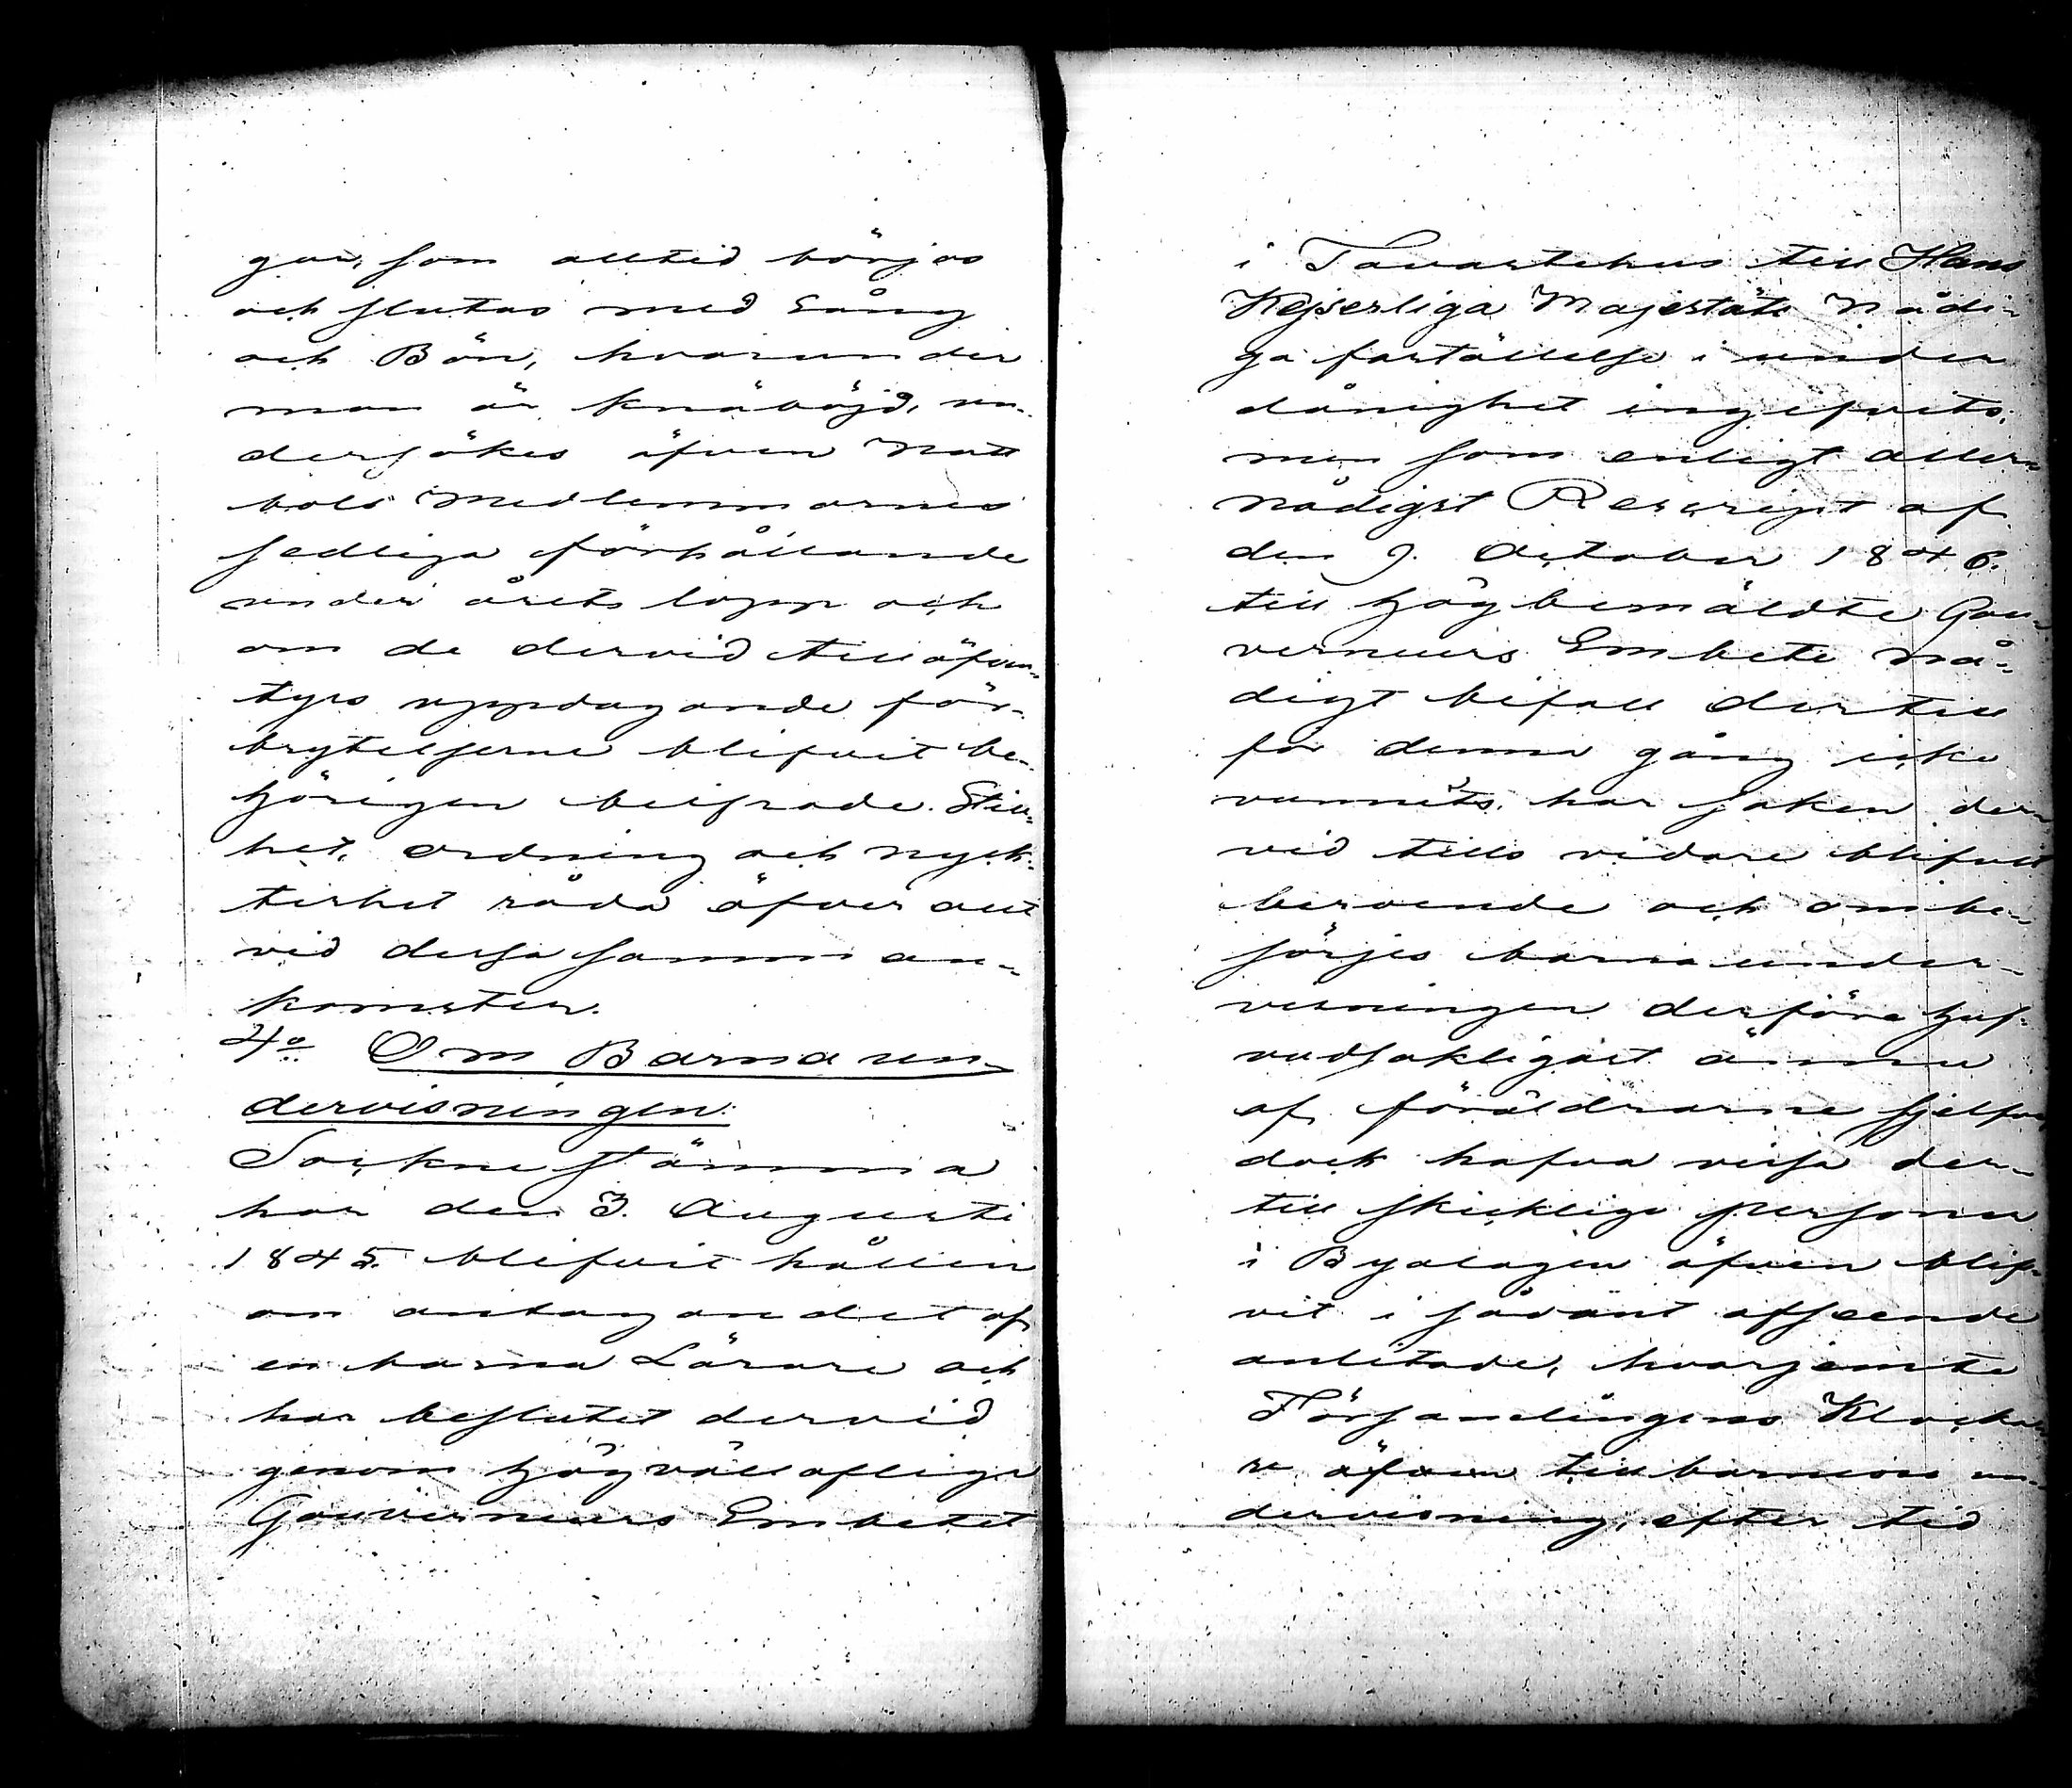 gar, som alltid börjas
och slutas med Sång
och Bön, hvarunder
man är knäböjd, un-
dersökes äfven Matt
bols Medlemmarnes
sedliga förhållande
under årets lopp och
om de dervid till äfven-
tyrs uppdagande för-
brytelserne blifvit be-
hörigen beifrade. Still-
het, ordning och nyck-
terhet råda öfver allt
vid dessa samman-
komster.
4o Om Barna un-
dervisningen.
Sockne stämma
har den 3. Augusti
1845. blifvit hållen
om antagandet af
en barna Lärare och
har beslutet dervid
genom högvällofliga
Gouverneurs Embetet
i Tavastehus till Hans
Kejserliga Majestäts Nådi-
ga fastställelse i under
dånighet ingifvits,
men som enligt aller-
nådigst Rescript af
den 9. October 1846.
till högbemäldte Gou-
verneurs Embete nå-
digt bifall dertill
för denna gång icke
vunnits, har saken der-
vid tills vidare blifvit
beroende och ombe-
sörjes barna under-
visningen derföre huf-
vudsakligast ännu
af föräldrarne sjelfva,
dock hafva vissa der-
till skickliga personer
i Byalagen äfven blif-
vit i sådant afseende
anlitade, hvarjemte
Församlingens Klocka-
re äfven till barnens un-
dervisning, efter tid